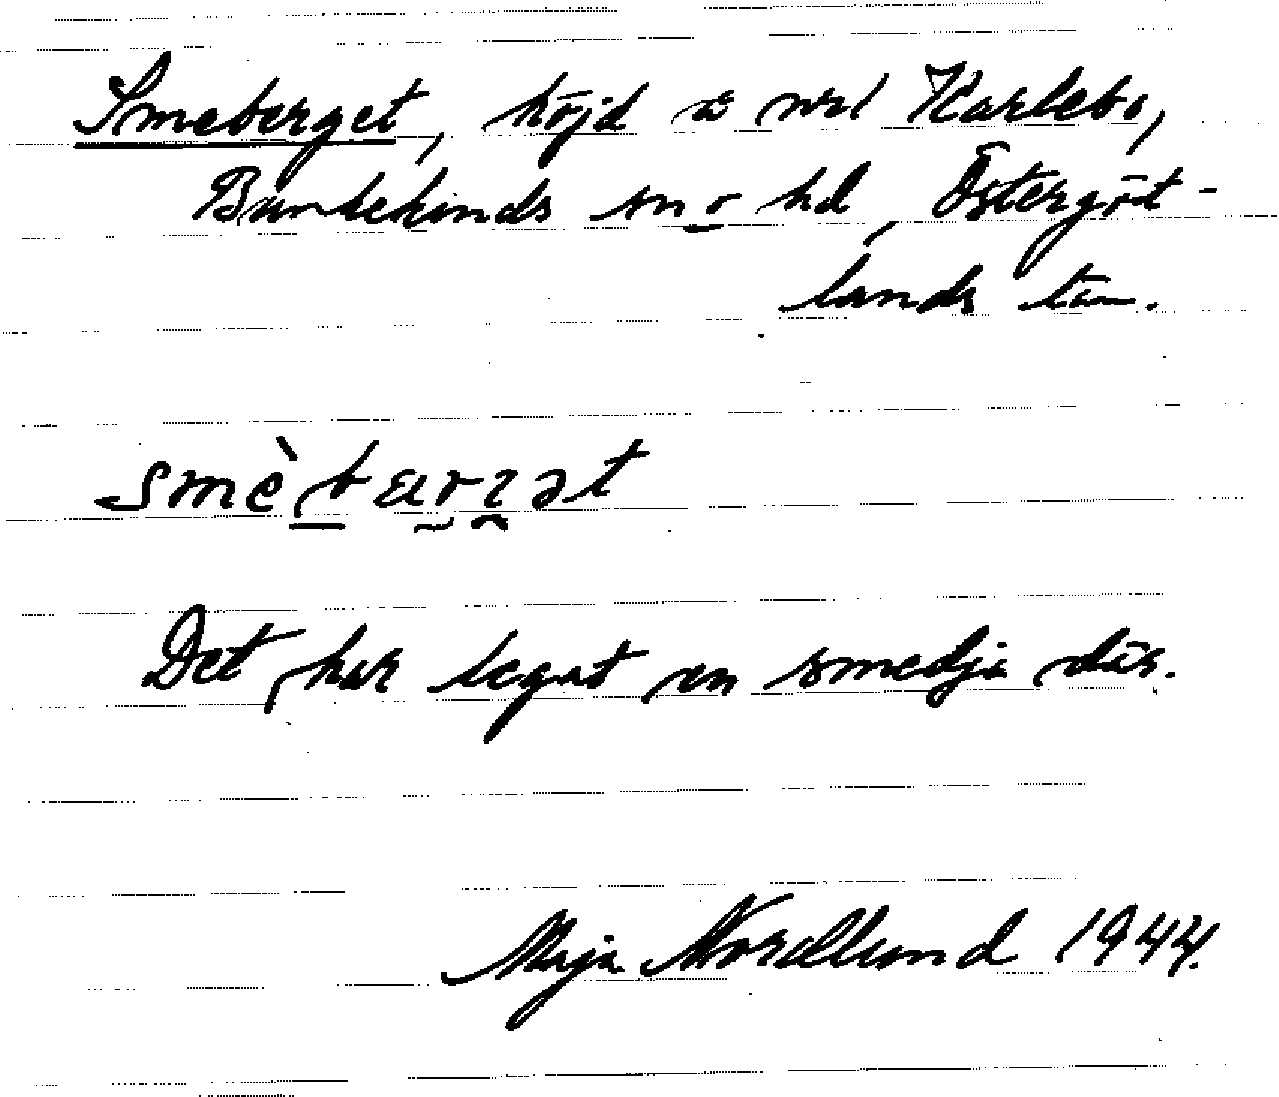 Smeberget, höjd å nrl Karlebo,
Bankekinds sn o hd, Östergöt-
lands län.
smèbærjət
Det har legat en smedja där.
Maja Nordlund 1944.